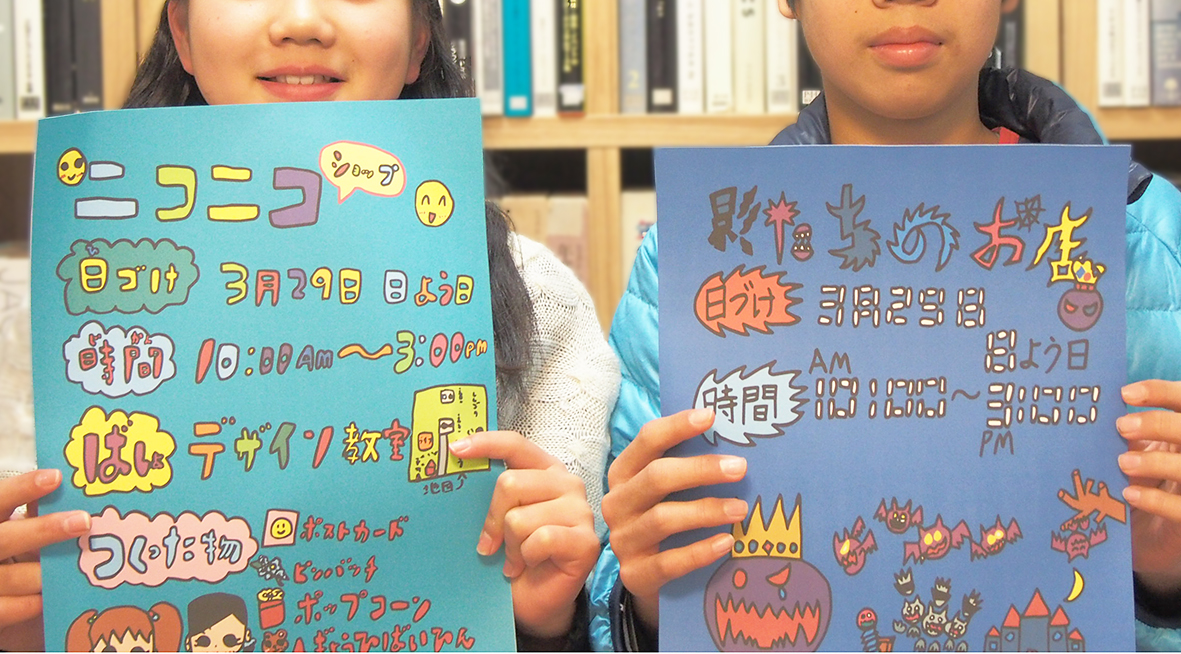 ニコニコ ショップ
日づけ 3月29日 日よう日
時間 10:00AM～3:00PM
ばしょ デザイン教室
地図↑
つくった物 ポストカード
ピンバッチ
ポップコーン
影たちのお店
日づけ 3月29日
日よう日
時間 AM 10:00～3:00 PM